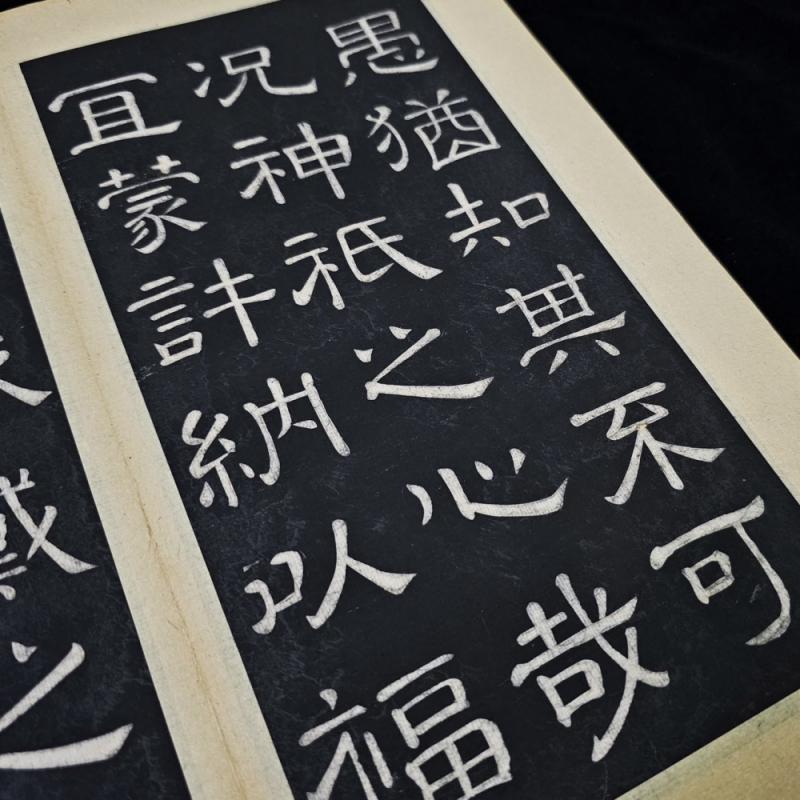 愚猶知其不可
況神祇之心哉
冝蒙許納以福
之